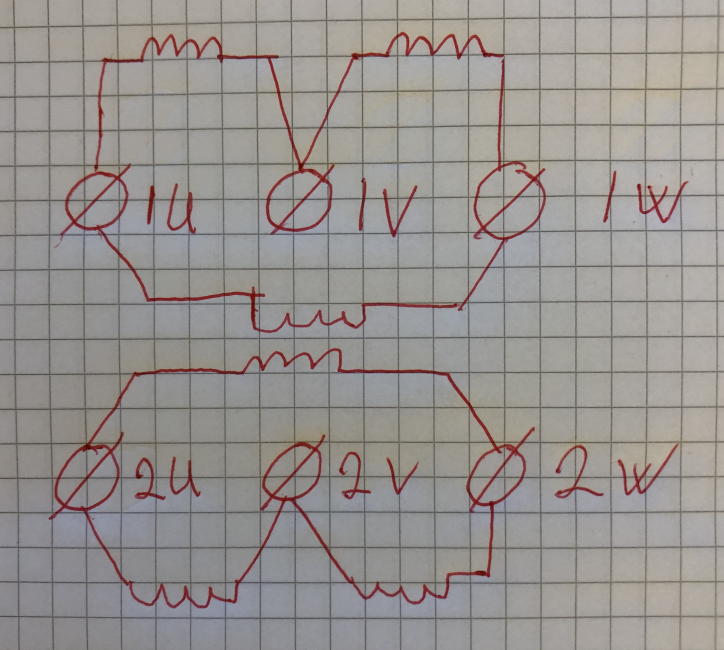 1U 1V 1W
2U 2V 2W